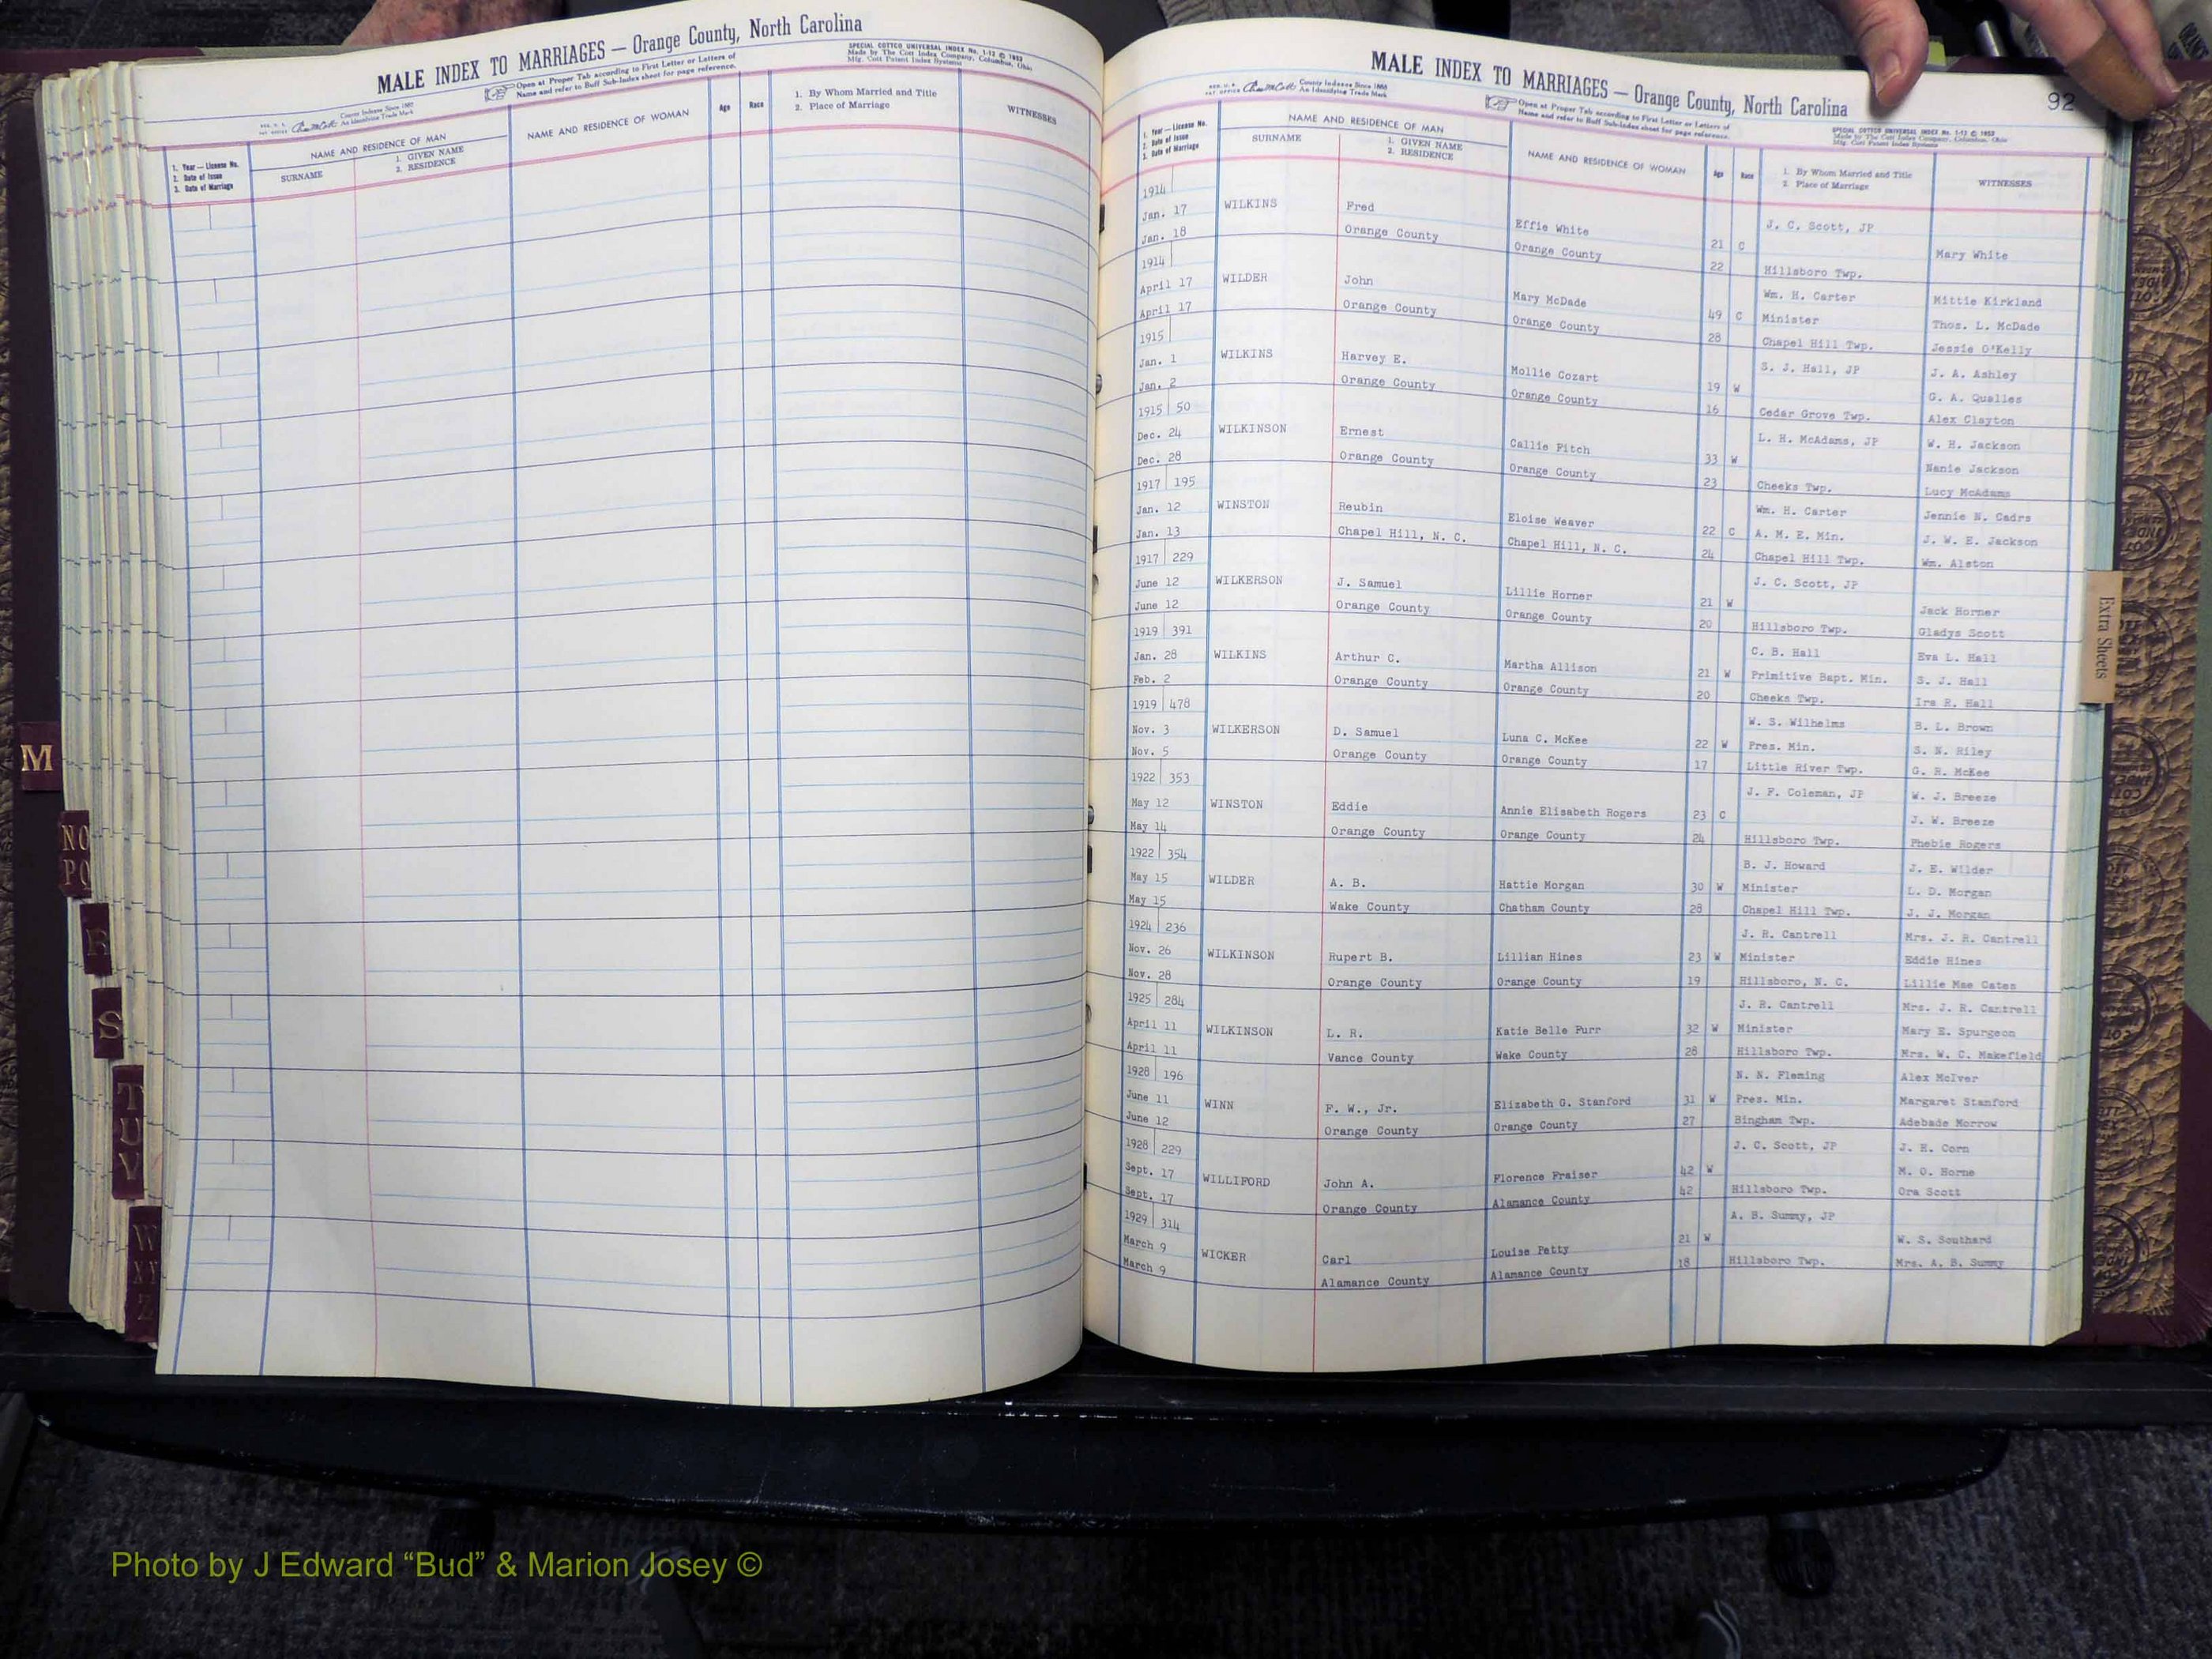 MALE INDEX TO MARRIAGES — Orange County, North Carolina
SPECIAL COTTCO UNIVERSAL INDEX No. 1-12 © 1953
Made by The Cott Index Company, Columbus, Ohio
Mfg. Cott Patent Index Systems
Open at Proper Tab according to First Letter or Letters of
Name and refer to Buff Sub-Index sheet for page reference.
County Indexes Since 1888
An Identifying Trade Mark
1. Year — License No.
2. Date of Issue
3. Date of Marriage
NAME AND RESIDENCE OF MAN
SURNAME
1. GIVEN NAME
2. RESIDENCE
NAME AND RESIDENCE OF WOMAN
Age
Race
1. By Whom Married and Title
2. Place of Marriage
WITNESSES
M
NO
PQ
R
S
T
U
V
W
XY
Z
MALE INDEX TO MARRIAGES — Orange County, North Carolina
92
County Indexes Since 1888
An Identifying Trade Mark
Open at Proper Tab according to First Letter or Letters of
Name and refer to Buff Sub-Index sheet for page reference.
SPECIAL COTTCO UNIVERSAL INDEX No. 1-12 © 1953
Made by The Cott Index Company, Columbus, Ohio
Mfg. Cott Patent Index Systems
1. Year — License No.
2. Date of Issue
3. Date of Marriage
NAME AND RESIDENCE OF MAN
SURNAME
1. GIVEN NAME
2. RESIDENCE
NAME AND RESIDENCE OF WOMAN
Age
Race
1. By Whom Married and Title
2. Place of Marriage
WITNESSES
1914 J. C. Scott, JP
Jan. 17 WILKINS Fred Effie White 21 C Mary White
Jan. 18 Orange County Orange County 22 Hillsboro Twp.
1914 Wm. H. Carter Mittie Kirkland
April 17 WILDER John Mary McDade 49 C Minister Thos. L. McDade
April 17 Orange County Orange County 28 Chapel Hill Twp. Jessie O'Kelly
1915 S. J. Hall, JP J. A. Ashley
Jan. 1 WILKINS Harvey E. Mollie Cozart 19 W G. A. Qualles
Jan. 2 Orange County Orange County 16 Cedar Grove Twp. Alex Clayton
1915 50 L. H. McAdams, JP W. H. Jackson
Dec. 24 WILKINSON Ernest Callie Fitch 33 W Nanie Jackson
Dec. 28 Orange County Orange County 23 Cheeks Twp. Lucy McAdams
1917 195 Wm. H. Carter Jennie N. Cadrs
Jan. 12 WINSTON Reubin Eloise Weaver 22 C A. M. E. Min. J. W. E. Jackson
Jan. 13 Chapel Hill, N. C. Chapel Hill, N. C. 24 Chapel Hill Twp. Wm. Alston
1917 229 J. C. Scott, JP
June 12 WILKERSON J. Samuel Lillie Horner 21 W Jack Horner
June 12 Orange County Orange County 20 Hillsboro Twp. Gladys Scott
1919 391 C. B. Hall Eva L. Hall
Jan. 28 WILKINS Arthur C. Martha Allison 21 W Primitive Bapt. Min. S. J. Hall
Feb. 2 Orange County Orange County 20 Cheeks Twp. Ira R. Hall
1919 478 W. S. Wilhelms B. L. Brown
Nov. 3 WILKERSON D. Samuel Luna C. McKee 22 W Pres. Min. S. N. Riley
Nov. 5 Orange County Orange County 17 Little River Twp. G. R. McKee
1922 353 J. F. Coleman, JP W. J. Breeze
May 12 WINSTON Eddie Annie Elisabeth Rogers 23 C J. W. Breeze
May 14 Orange County Orange County 24 Hillsboro Twp. Phebie Rogers
1922 354 B. J. Howard J. E. Wilder
May 15 WILDER A. B. Hattie Morgan 30 W Minister L. D. Morgan
May 15 Wake County Chatham County 28 Chapel Hill Twp. J. J. Morgan
1924 236 J. R. Cantrell Mrs. J. R. Cantrell
Nov. 26 WILKINSON Rupert B. Lillian Hines 23 W Minister Eddie Hines
Nov. 28 Orange County Orange County 19 Hillsboro, N. C. Lillie Mae Cates
1925 284 J. R. Cantrell Mrs. J. R. Cantrell
April 11 WILKINSON L. R. Katie Belle Furr 32 W Minister Mary E. Spurgeon
April 11 Vance County Wake County 28 Hillsboro Twp. Mrs. W. C. Makefield
1928 196 N. N. Fleming Alex McIver
June 11 WINN F. W., Jr. Elizabeth G. Stanford 31 W Pres. Min. Margaret Stanford
June 12 Orange County Orange County 27 Bingham Twp. Adebade Morrow
1928 229 J. C. Scott, JP J. H. Corn
Sept. 17 WILLIFORD John A. Florence Fraiser 42 W M. O. Horne
Sept. 17 Orange County Alamance County 42 Hillsboro Twp. Ora Scott
1929 314 A. B. Summy, JP
March 9 WICKER Carl Louise Petty 21 W W. S. Southard
March 9 Alamance County Alamance County 18 Hillsboro Twp. Mrs. A. B. Summy
Extra Sheets
Photo by J Edward “Bud” & Marion Josey ©